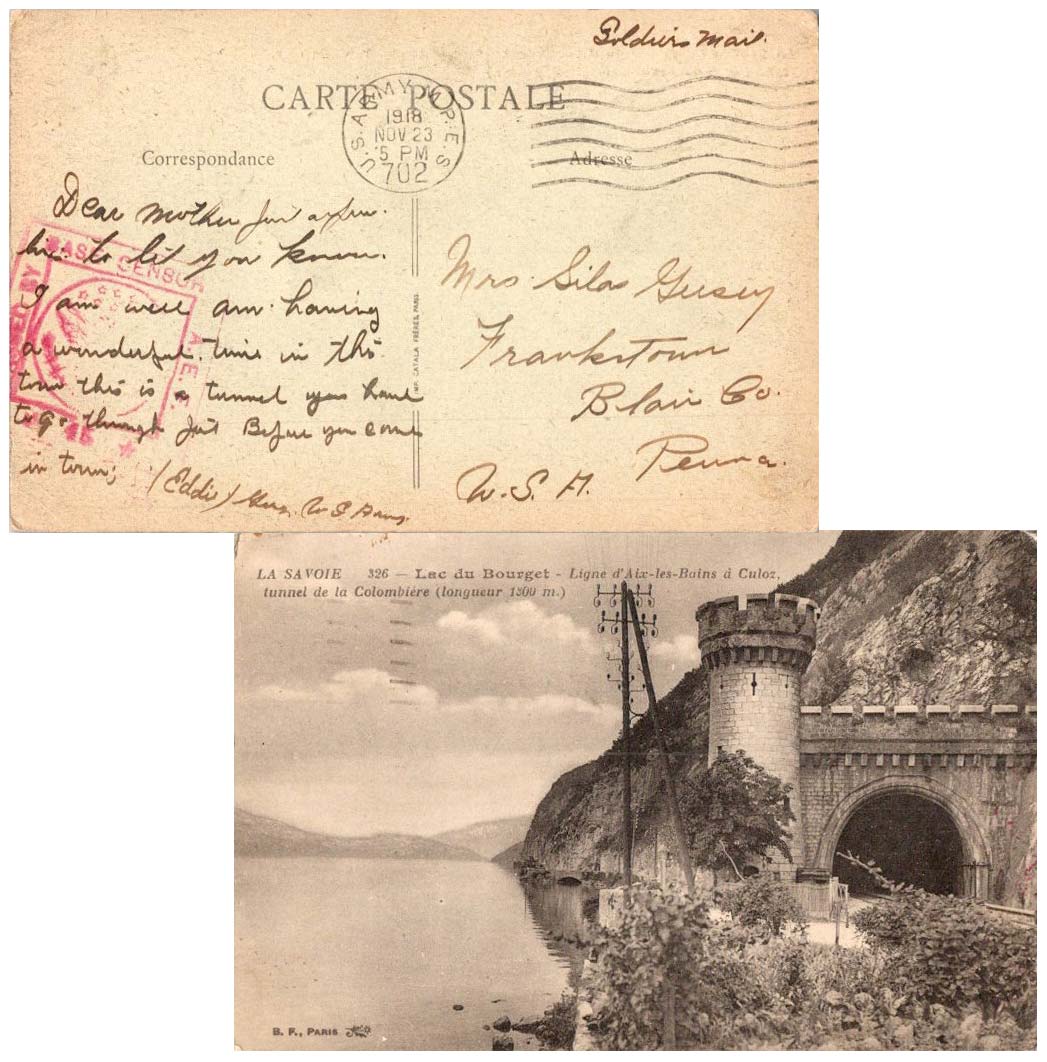 Soldiers Mail.
CARTE POSTALE
U.S. ARMY M.P.E.S.
1918
NOV 23
5 PM
702
Correspondance
Adresse
Dear Mother Just a few
line to let you know.
I am well am having
a wonderful time in this
town this is a tunnel you have
to go through Just Before you come
in town;
(Eddie) U S Army.
BASE CENSOR
A. E. F.
BY
IMP. CATALA FRÈRES, PARIS
Mrs Silas
Frankstown
Blair Co.
Penna.
U. S. A.
LA SAVOIE 326 — Lac du Bourget - Ligne d'Aix-les-Bains à Culoz,
tunnel de la Colombière (longueur 1300 m.)
B. F., PARIS